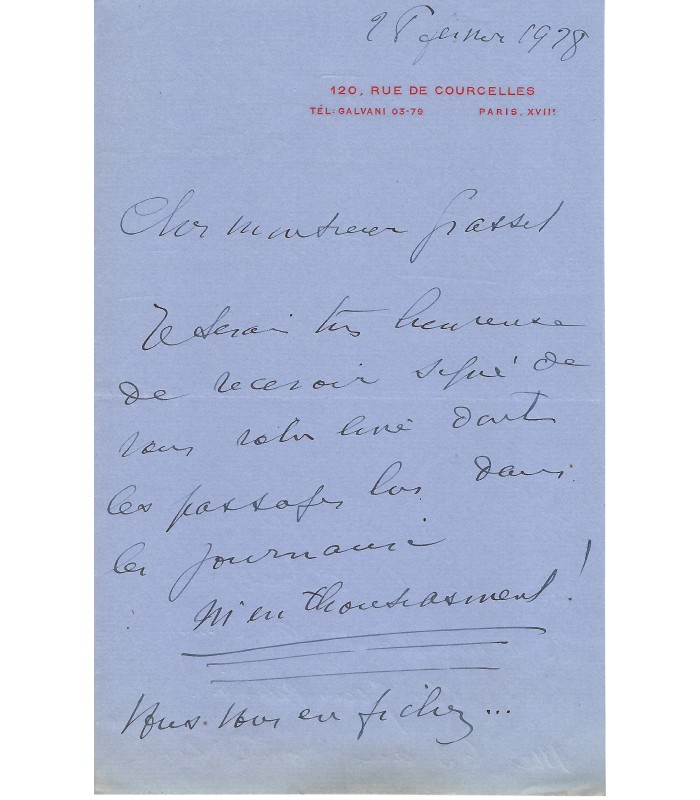 2 février 1928
120, RUE DE COURCELLES
TÉL: GALVANI 03-79 PARIS, XVIIe
Cher monsieur Grasset
Je serais très heureuse
de recevoir signé de
vous votre livre dont
les passages lus dans
les journaux
m'enthousiasment!
Vous vous en fichez...